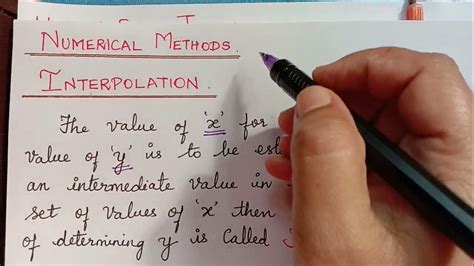 NUMERICAL METHODS.
INTERPOLATION.
The value of 'x' for
value of 'y' is to be
an intermediate value in
set of values of 'x' then
of determining y is called